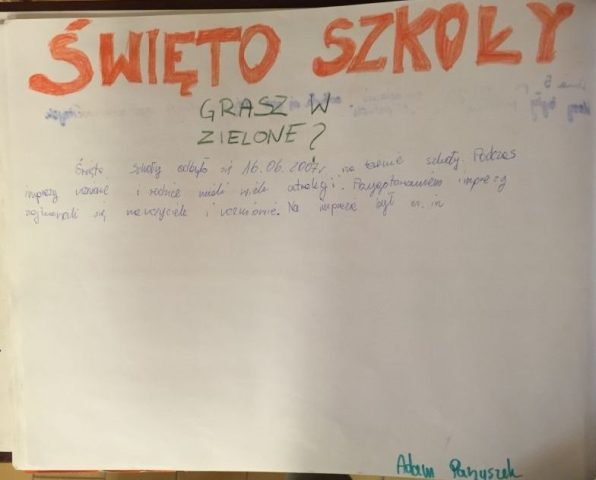 ŚWIĘTO SZKOŁY
GRASZ W
ZIELONE?
Święto Szkoły odbyło się 16.06.2007r. na terenie szkoły. Podczas
imprezy uczniowie i rodzice mieli wiele atrakcji. Przygotowaniem imprezy
zajmowali się nauczyciele i uczniowie. Na imprezie był m.in
Adam